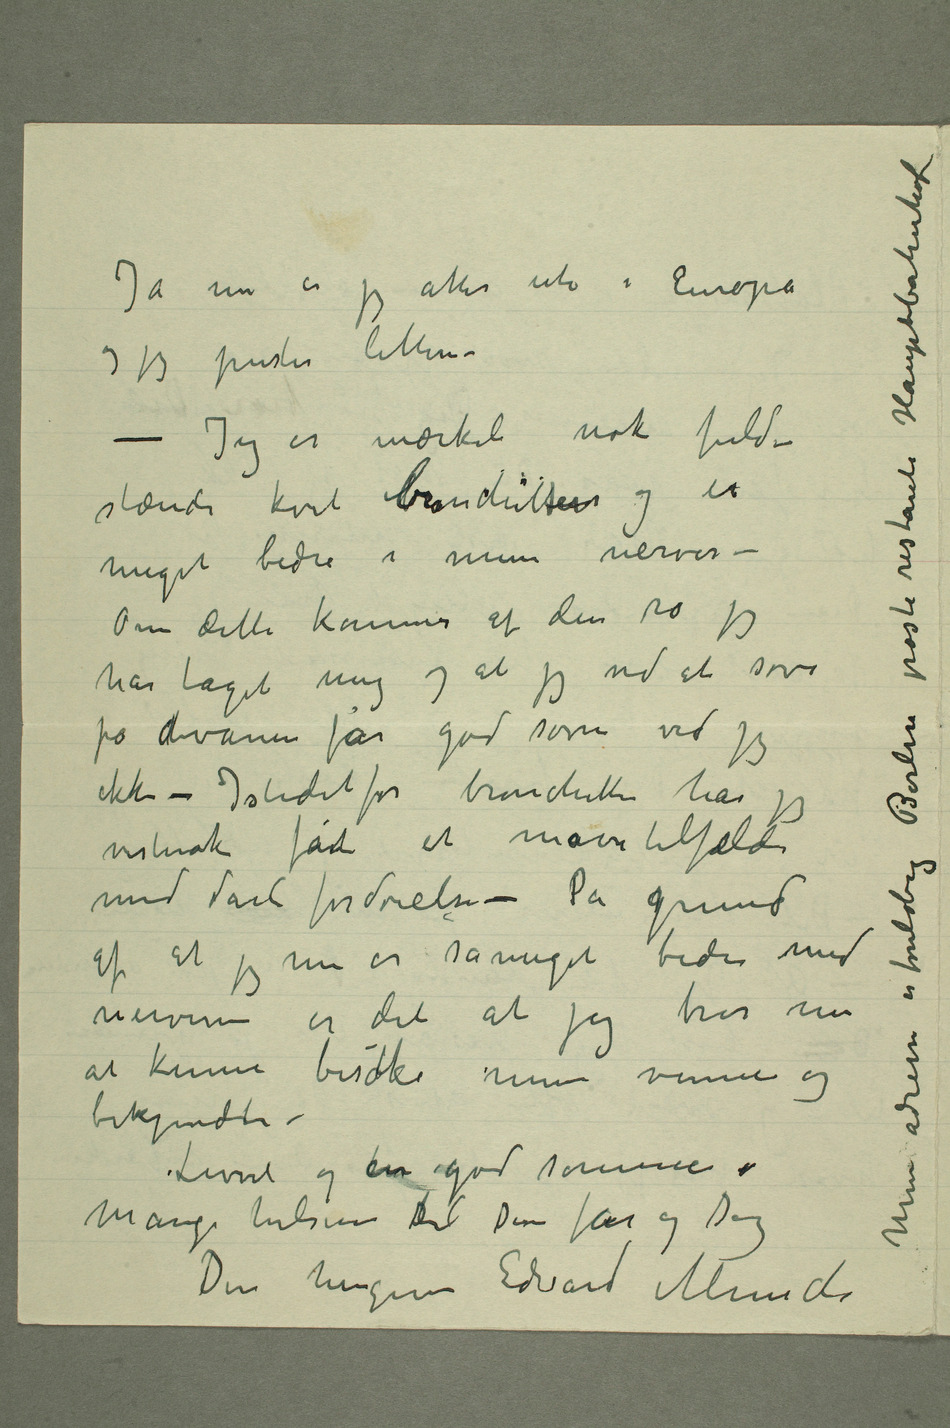 Ja nu er jeg atter ute i Europa
og jeg puster lettere –
— Jeg er mærkeli nok fuld-
stændi kvit bronchitten og er
meget bedre i mine nerver –
Om dette kommer af den ro jeg
har taget mig og at jeg ved at sove
på divanen får god søvn ved jeg
ikke – Istedetfor bronchitten har jeg
vistnok fåt et mavetilfælde
med dårli fordøielse – På grund
af at jeg nu er såmeget bedre med
nervene er det at jeg tror nu
at kunne besøke mine venner og
bekjendte –
Levvel og en god sommer
Mange hilsener til Din far og Dig
Din hengivne Edvard Munch
Min adresse er foreløbig Berlin poste restante Hauptbahnhof